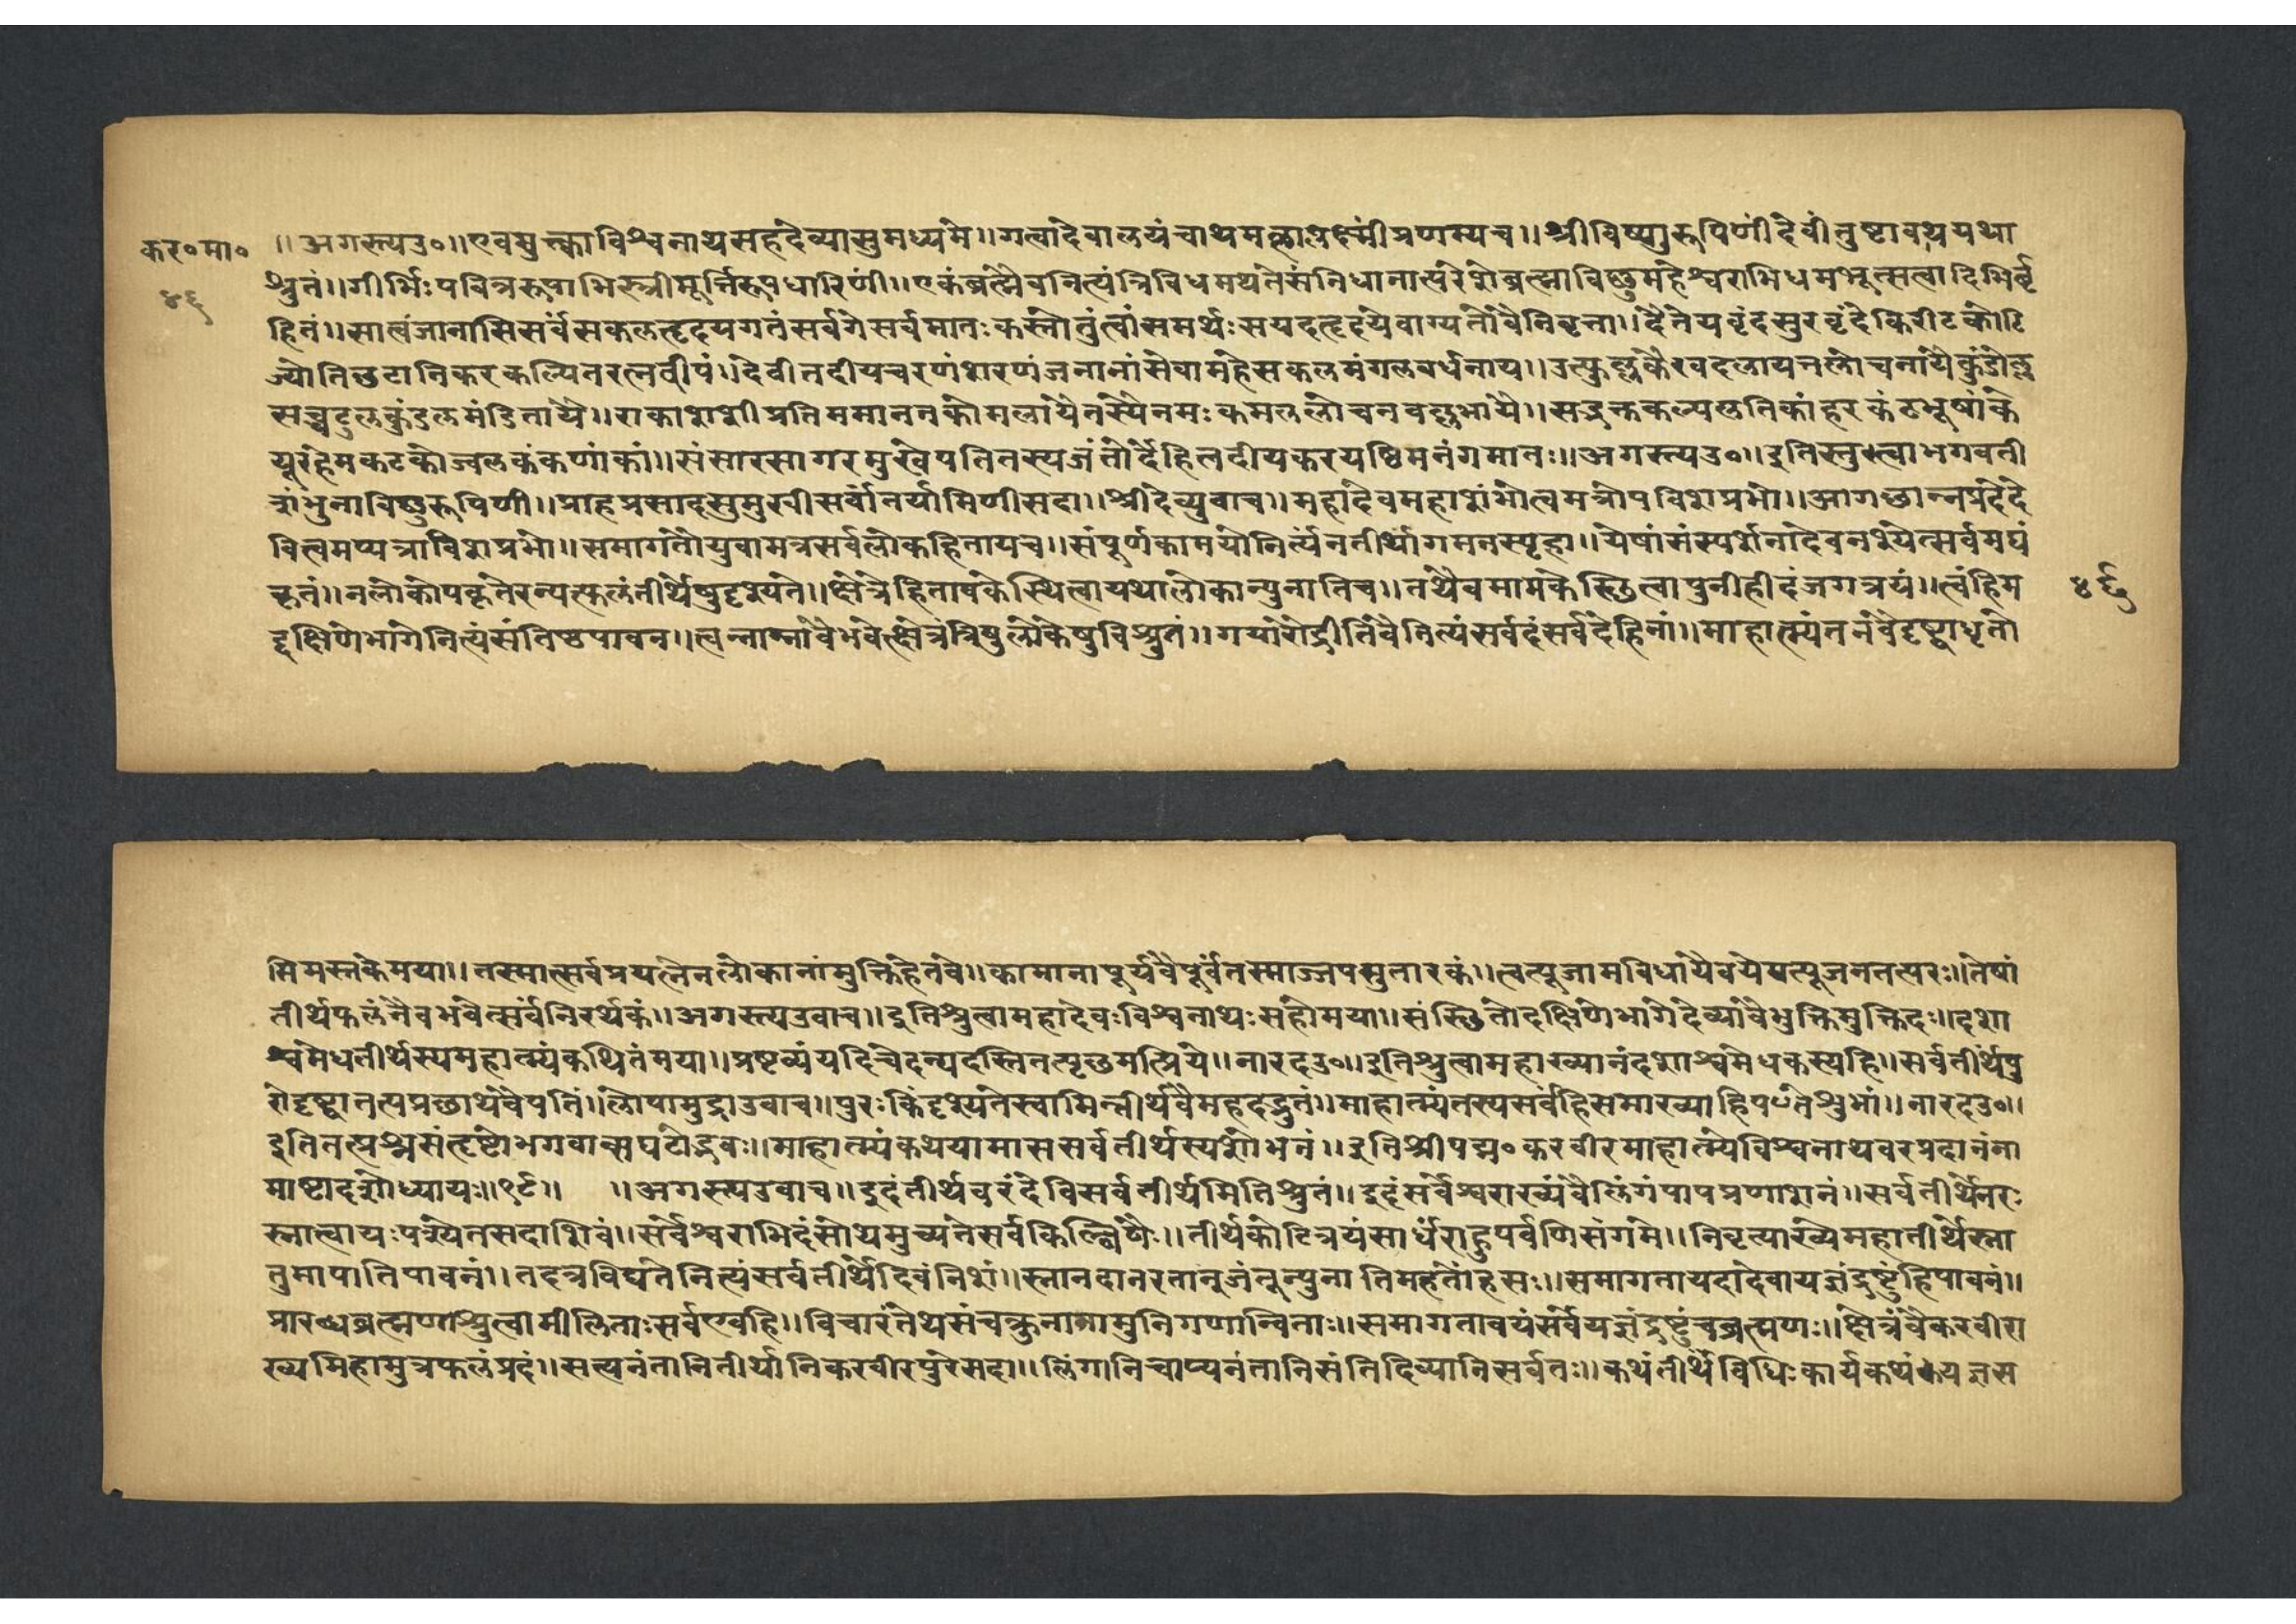 कर॰मा॰
४६
॥अगस्त्यउ॰॥एवमुक्त्वाविश्वनाथसहदेव्यासुमध्यमे॥गत्वादेवालयंचाथमहालक्ष्मींप्रणम्यच॥श्रीविष्णुरूपिणींदेवींतुष्टावथयथा
श्रुतं॥गीर्भिःपवित्ररूपाभिस्त्रीमूर्त्तिरूपधारिणीं॥एकंब्रह्मैवनित्यंत्रिविधमथतेसंनिधानात्परेशेब्रह्माविष्णुमहेश्वराभिधमभूत्सत्वादिभिर्बृ
हितं॥सात्वंजानासिसर्वंसकलहृदयगतंसर्वगेसर्वमातःकस्तोतुंत्वांसमर्थःसयदहृदयेवाग्यतोवैनिवृत्ता॥दैतेयवृंदसुरवृंदकिरीटकोटि
ज्योतिछटानिकरकल्पितरत्नदीपं॥देवीतदीयचरणंशरणंजनानांसेवामहेसकलमंगलवर्धनाय॥उत्फुल्लकैरवदलायतलोचनायैकुंडोल्ल
सच्चटुलकुंडलमंडितायै॥राकाशशीप्रतिममाननकोमलायैतस्यैनमःकमललोचनवल्लभायै॥सद्भक्तकल्पलतिकांहरकंठभूषांके
यूरहेमकटकोज्वलकंकणांकां॥संसारसागरमुखेपतितस्यजंतोर्देहित्वदीयकरयष्टिमनंगमातः॥अगस्त्यउ॰॥इतिस्तुत्वाभगवती
शंभुनाविष्णुरूपिणी॥प्राहप्रसादसुमुखीसर्वांतर्यामिणीसदा॥श्रीदेव्युवाच॥महादेवमहाशंभोत्वमत्रोपविशप्रभो॥आगछान्नप्रदेदे
वित्वमप्यत्राविशप्रभो॥समागतोयुवामत्रसर्वलोकहितायच॥संपूर्णकामयोनित्यंनतीर्थागमनस्पृहा॥येषांसंस्पर्शनादेवनश्येत्सर्वमघं
कृतं॥नलोकोपकृतेरन्यत्फलंतीर्थेषुदृश्यते॥क्षेत्रेहितावकेस्थित्वायथालोकान्पुनातिच॥तथैवमामकेस्छित्वापुनीहीदंजगत्रयं॥त्वंहिम
द्दक्षिणेभागेनित्यंसंतिष्ठपावन॥त्वन्नाम्नावैभवेत्क्षेत्रंत्रिषुलोकेषुविश्रुतं॥गयारोद्गीतिवैतित्यंसर्वदंसर्वदेहिनां॥माहात्म्यंतनवैदृष्ट्वाधृतो
४६
सिमस्तकेमया॥तस्मात्सर्वप्रयत्नेनलोकानांमुक्तिहेतवे॥कामानापूर्यवैपूर्वंतस्माज्जपसुतारकं॥त्वत्पूजामविधायैवयेमत्पूजनतत्परः॥तेषां
तीर्थफलंनैवभवेत्सर्वंनिरर्थकं॥अगस्त्यउवाच॥इतिश्रुत्वामहादेवःविश्वनाथःसहोमया॥संस्छितोदक्षिणेभागेदेव्यावैभुक्तिमुक्तिदः॥दशा
श्वमेधतीर्थस्यमहात्म्यंकथितंमया॥प्रष्टव्यंयदिचेदन्यदस्तितत्पृछमत्प्रिये॥नारदउ॰॥इतिश्रुत्वामहाख्यानंदशाश्वमेधकस्यहि॥सर्वतीर्थंपु
रोदृष्ट्वातत्पप्रछाथवैपतिं॥लोपामुद्राउवाच॥पुरःकिंदृश्यतेस्वामिन्तीर्थंवैमहदद्भुतं॥माहात्म्यंतस्यसर्वंहिसमाख्याहिपतेशुभां॥नारदउ॰॥
इतितत्प्रश्नसंतृष्टोभगवान्सघटोद्भवः॥माहात्म्यंकथयामाससर्वतीर्थस्यशोभनं॥इतिश्रीपद्म॰करवीरमाहात्म्येविश्वनाथवरप्रदानंना
माष्टादशोध्यायः॥१८॥ ॥अगस्त्यउवाच॥इदंतीर्थवरंदेविसर्वतीर्थमितिश्रुतं॥इदंसर्वेश्वराख्यंवैलिंगंपापप्रणाशनं॥सर्वतीर्थेनरः
स्नात्वायःपश्येतसदाशिवं॥सर्वेश्वराभिदंसोथमुच्यतेसर्वकिल्बिषैः॥तीर्थकोटित्रयंसार्धंराहुपर्वणिसंगमे॥निवृत्याख्येमहातीर्थेस्ना
तुमापातिपावनं॥तदत्रविद्यतेनित्यंसर्वतीर्थेदिवंनिशं॥स्नानदानरतानृजंतून्पुनातिमहतोंहसः॥समागतायदादेवायज्ञंद्रष्टुंहिपावनं॥
प्रारब्धंब्रह्मणाश्रुत्वामीलिताःसर्वएवहि॥विचारंतेथसंचक्रुनानामुनिगणान्विताः॥समागतावयंसर्वेयज्ञंद्रष्टुंचब्रह्मणः॥क्षेत्रंवैकरवीरा
ख्यमिहामुत्रफलंप्रदं॥सत्यनंतानितीर्थानिकरवीरपुरेसदा॥लिंगानिचाप्यनंतानिसंतिदिव्यानिसर्वतः॥कथंतीर्थेविधिःकार्यकथंयज्ञस